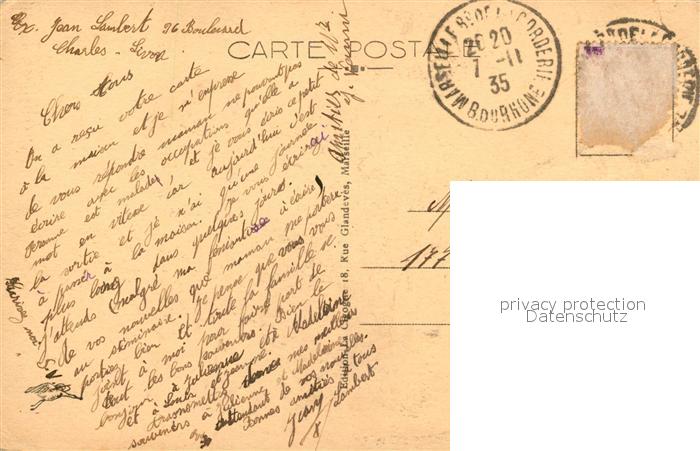 Ex. Jean Lambert 96 Boulevard
Charles-Livon
CARTE POSTALE
MARSEILLE Bd DE LA CORDERIE
20 20
7 -11
35
B. DU RHONE
Chers tous
On a reçu votre carte
à la maison et je m'empresse
de vous répondre maman ne pouvant pas
écrire avec les occupations qu'elle a
est malade, et je vous écris ce petit
mot en vitesse car aujourd'hui c'est
la sortie et je n'ai qu'une journée
à passer à la maison. Je vous écrirai
plus long dans quelques jours.
J'attends malgré ma fénéantise à écrire,
de vos nouvelles que maman me portera
au séminaire. Je pense que vous vous
portez bien et toute la famille se
joint à moi pour faire part de
tout les bons souvenirs. Bien le
bonjour à Julienne et à Madeleine
et à Louis et Jeanne.
transmettre mes meilleurs
souvenirs à Julienne et Madeleine
attendant de vos nouvelles.
Bonnes amitiés à tous
Jean
Lambert
amitiés de
Edition La Cigogne 18, Rue Glandevès, Marseille
M
177
privacy protection
Datenschutz